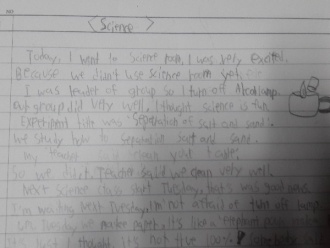 <Science>
Today, I went to science room, I was very excited.
Because we didn't use science room yet.
I was leader of group so I turn off Alcohlamp.
Our group did very well. I thought science is fun.
Experiment title was "Separation of salt and sand".
We study how to separation salt and sand.
my teacher clean your table.
So we did it. Teacher said we clean very well.
Next science class start Tuesday, that's was good news.
I'm waiting next Tuesday, I'm not afraid of turn off lamp.
Tuesday we make paper, It's like
I thought, It's not the